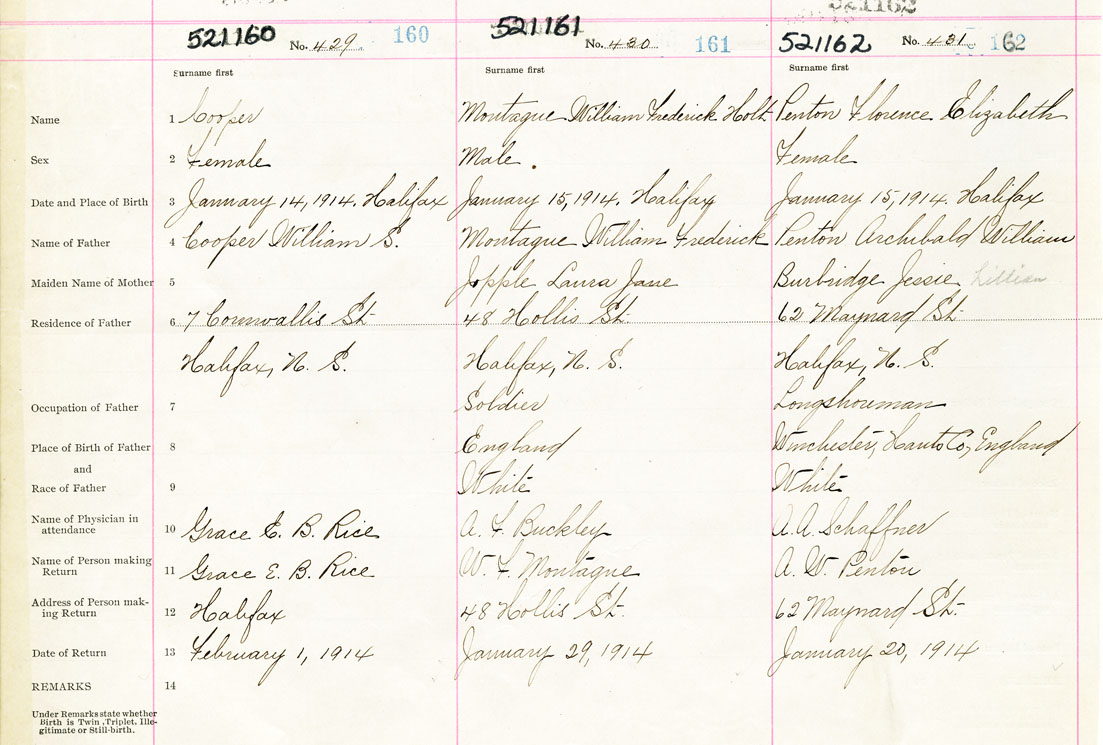 521160 No. 429. 160
521161 No. 430. 161
521162 No. 431. 162
Surname first Surname first Surname first
Name 1 Cooper Montague William Frederick Holt Penton Florence Elizabeth
Sex 2 Female Male. Female
Date and Place of Birth 3 January 14, 1914. Halifax January 15, 1914. Halifax January 15, 1914. Halifax
Name of Father 4 Cooper William S. Montague William Frederick Penton Archibald William
Maiden Name of Mother 5 Jpple Laura Jane Burbridge Jessie Lillian
Residence of Father 6 7 Cornwallis St. 48 Hollis St. 62 Maynard St.
Halifax, N. S. Halifax, N. S. Halifax, N. S.
Occupation of Father 7 Soldier Longshoreman
Place of Birth of Father 8 England Winchester, Hants Co, England
and
Race of Father 9 White White
Name of Physician in
attendance 10 Grace E. B. Rice A. F. Buckley A. A. Schaffner
Name of Person making
Return 11 Grace E. B. Rice W. F. Montague A. W. Penton
Address of Person mak-
ing Return 12 Halifax 48 Hollis St. 62 Maynard St.
Date of Return 13 February 1, 1914 January 29, 1914 January 20, 1914
REMARKS 14
Under Remarks state whether
Birth is Twin, Triplet, Ille-
gitimate or Still-birth.